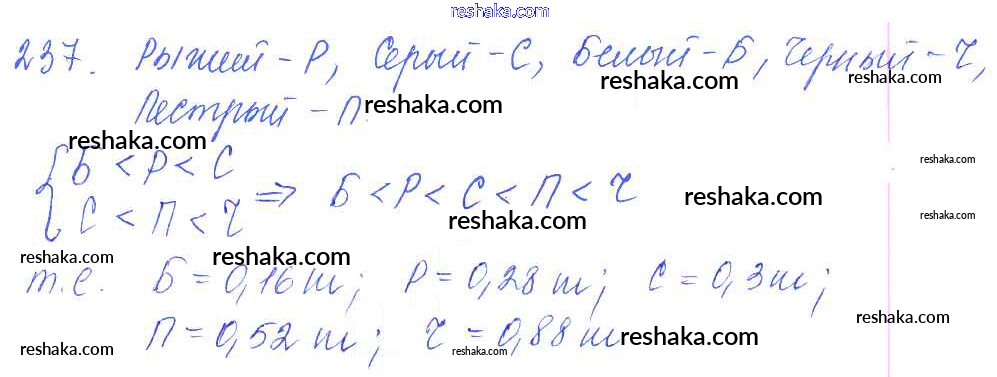 reshaka.com
237. Рыжий - Р, Серый - С, Белый - Б, Черный - Ч,
reshaka.com
reshaka.com
Пестрый - П.
reshaka.com
reshaka.com
Б < Р < С
С < П < Ч => Б < Р < С < П < Ч
reshaka.com
reshaka.com
reshaka.com
reshaka.com
reshaka.com
reshaka.com
т.е. Б = 0,16 т; Р = 0,28 т; С = 0,3 т;
reshaka.com
П = 0,52 т; Ч = 0,88 т
reshaka.com
reshaka.com
reshaka.com